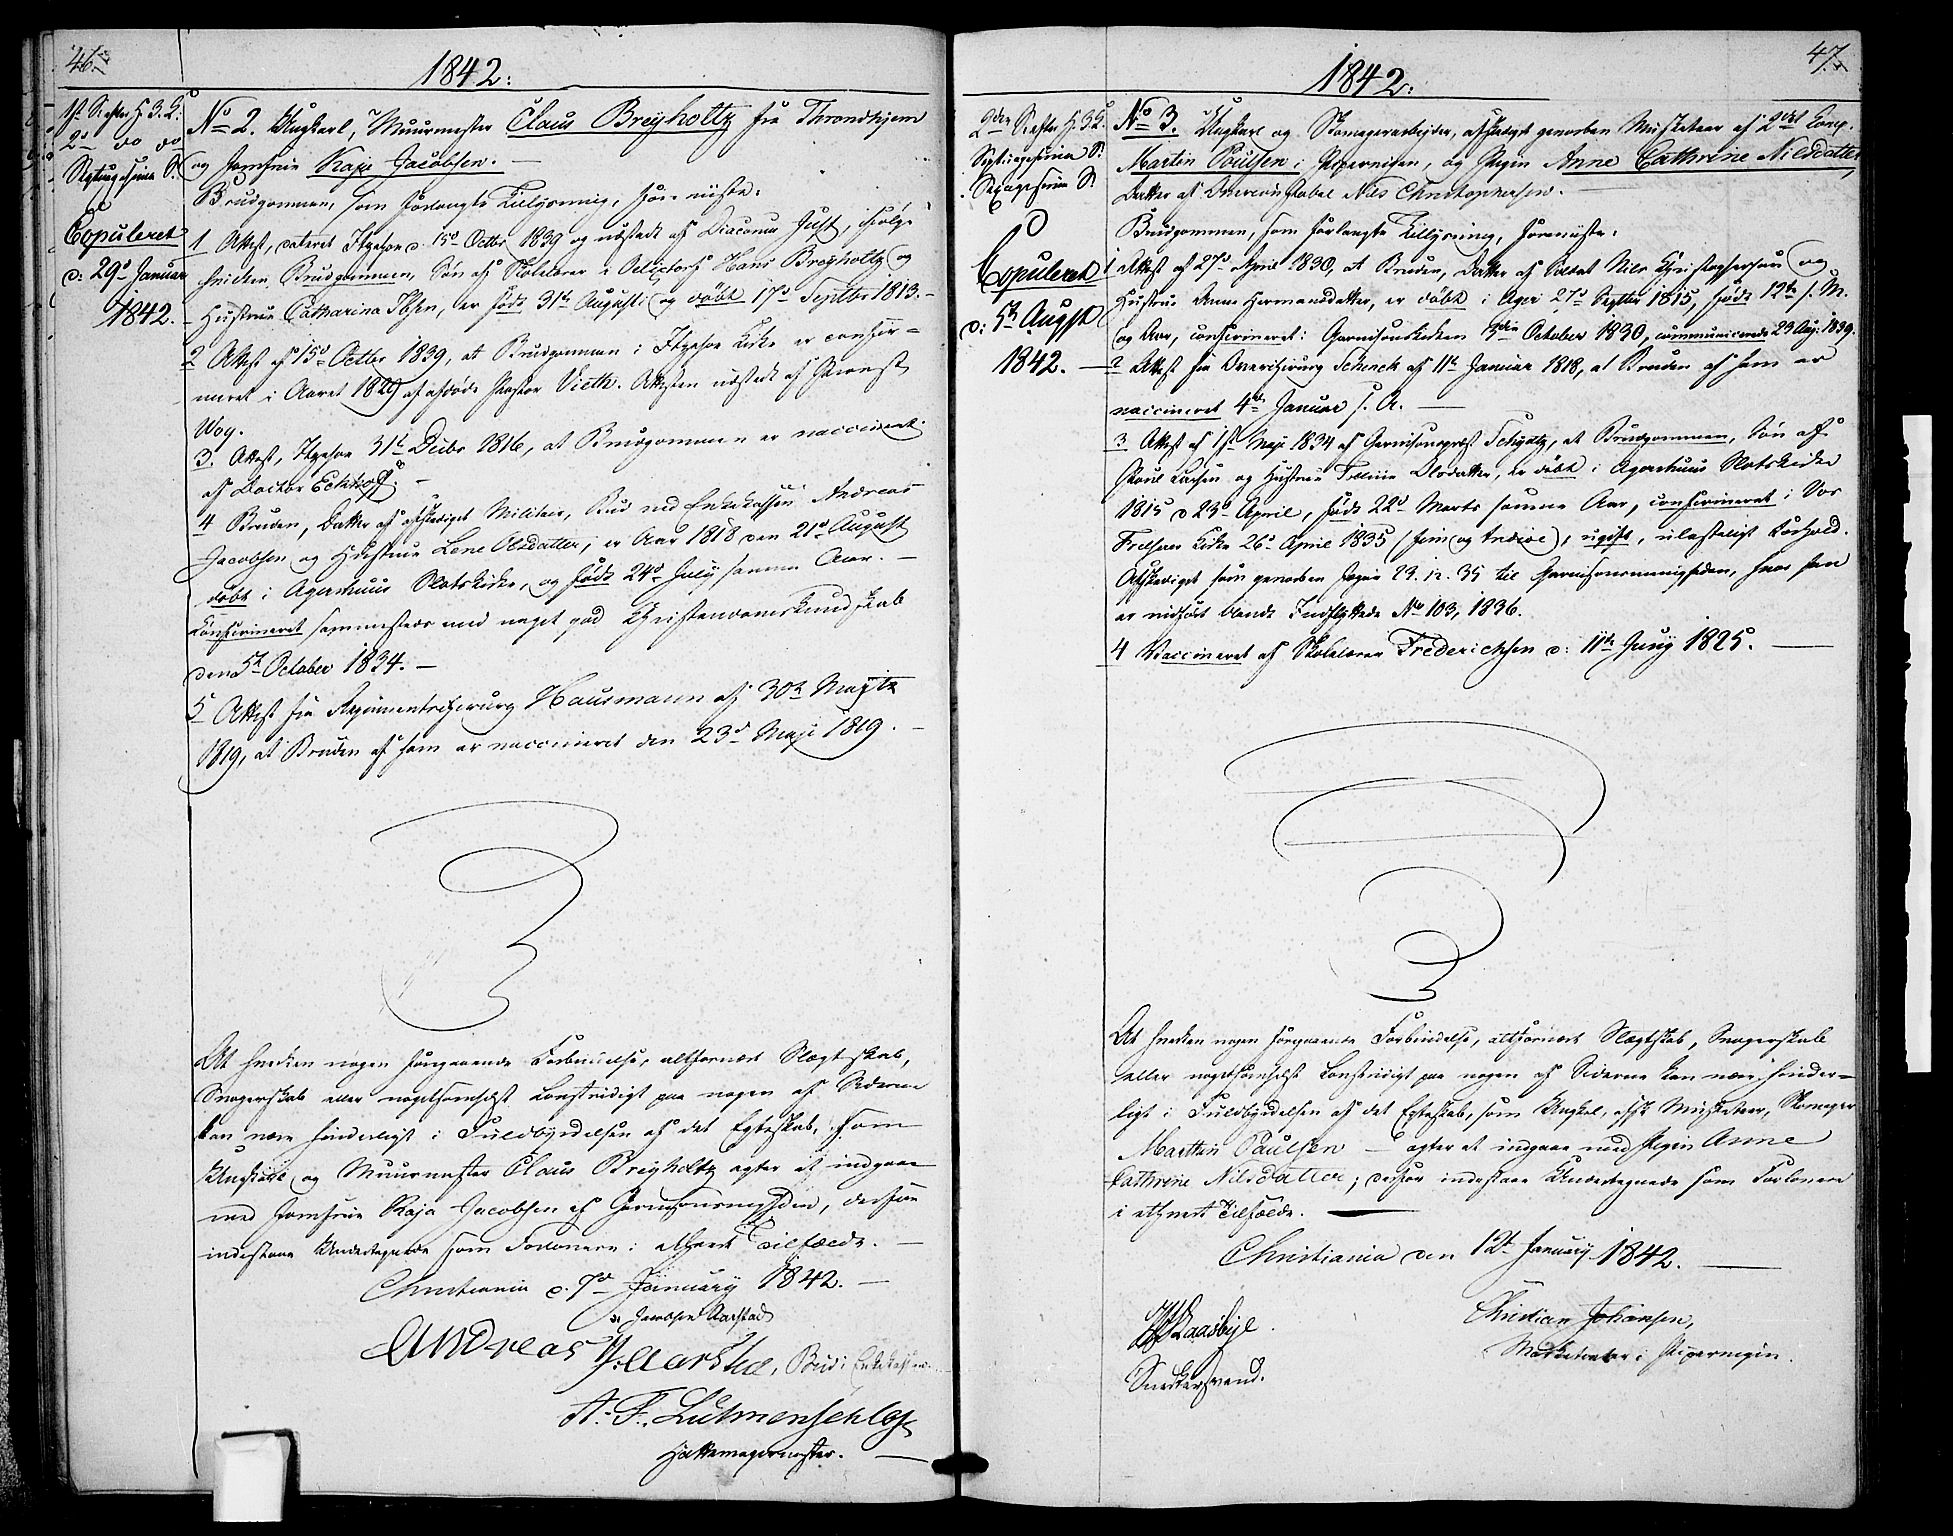 46.
1842.
1st S. efter H. 3 K.
2d do do
Septuagesima S.
Copuleret
d: 29d Januar
1842.
No 2. Ungkarl, Muurmester Claus Breyholtz fra Throndhjem
og Jomfrue Kaja Jacobsen. —
Brudgommen, som forlangte Tillysning, foreviiste:
1 Attest, dateret Itzehoe d. 15d Octbr 1839 og udstedt af Diaconus Just, ifølge
hvilken Brudgommen, Søn af Skolelærer i Oelixdorf Hans Breyholtz og
Hustrue Catharina Ibsen, er født 31te Augusti og døbt 17d Septbr 1813. —
2 Attest af 15d Octbr 1839, at Brudgommen i Itzehoe Kirke er confir-
meret i Aaret 1829 af afdøde Pastor Vieth. Attesten udstedt af Provst
Woy.
3. Attest, Itzehoe 31t Decbr 1816, at Brudgommen er vaccineret
af Doctor Eckhoff. —
4 Bruden, Datter af afskediget Militair, Bud ved Enkekassen Andreas
Jacobsen og Hustrue Lene Olsdatter, er Aar 1818 den 21d August
døbt i Agershuus Slotskirke, og født 24d July samme Aar. —
Confirmeret sammesteds med meget god Christendomskundskab
den 5te October 1834. —
5 Attest fra Regimentschirurg Hausmann af 30te Maji
1819, at Bruden af ham er vaccineret den 23d Maji 1819. —
At hverken nogen foregaaende Forbindelse, altfornært Slægtskab,
Svogerskab eller nogetsomhelst Lovstridigt paa nogen af Siderne
kan være hinderligt i Fuldbyrdelsen af det Egteskab, som
Ungkarl og Muurmester Claus Breyholtz agter at indgaae
med Jomfrue Kaja Jacobsen af Garnisonsmenigheden, derfor
indestaae Undertegnede som Forlovere i ethvert Tilfælde. —
Christiania d. 7d January 1842. —
Jacobsen Aarstad
Andreas J: Aarstad, Bud i Enkekassen.
A. F. Lütmenschloss
Hattemagermester. —
47.
1842.
2den S. efter H. 3 K.
Septuagesima S.
Sexagesima S.
Copuleret
d: 5te Augst
1842. —
No 3. Ungkarl og Skomagerarbeider, afskediget geworben Musketeer af 2det Comp.
Martin Poulsen i Pipervigen, og Pigen Anne Cathrine Nilsdatter,
Datter af Overconstabel Nils Christophersen.
Brudgommen, som forlangte Tillysning, foreviiste:
1 Attest af 27d April 1830, at Bruden, Datter af Soldat Nils Christophersen og
Hustrue Anne Hermansdatter, er døbt i Ager 27d Septbr 1815, født 12te s. M.
og Aar, confirmeret i Garnisonskirken 3die October 1830, communicerede 23 Aug. 1839.
2 Attest fra Overchirurg Schenck af 11te Januar 1818, at Bruden af ham er
vaccineret 4de Januar s. A. —
3 Attest af 1st Maji 1834 af Garnisonspræst Schytz, at Brudgommen, Søn af
Poul Larsen og Hustrue Olsdatter, er døbt i Agershuus Slotskirke
1815 d 23d April, født 22d Marts samme Aar, confirmeret i Vor
Frelsers Kirke 26d April 1835, ugift, ulasteligt Forhold.
Afskediget som geworben Jæger 23. 12. 35 til Garnisonsmenigheden, hvor han
er indført blandt Indflyttede No 103, 1836.
4 Vaccineret af Skolelærer Frederichsen d: 11te Juny 1825. —
At hverken nogen foregaaende Forbindelse, altfornært Slægtskab, Svogerskab
eller nogetsomhelst Lovstridigt paa nogen af Siderne kan være hinder-
ligt i Fuldbyrdelsen af det Egteskab, som Ungkarl, afsk. Musketeer, Skomager
Marthin Paulsen — agter at indgaae med Pigen Anne
Cathrine Nilsdatter; derfor indestaae Undertegnede som Forlovere
i ethvert Tilfælde. —
Christiania den 12te January 1842. —
Christian Johansen,
Marketenter i Pipervigen.
Snedkersvend.